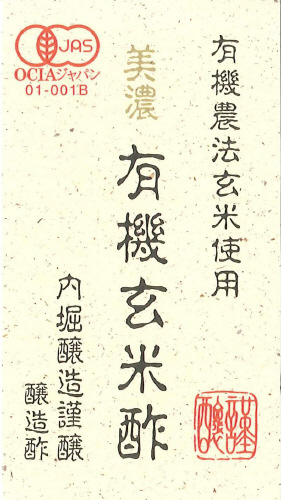 JAS
OCIAジャパン
01-001B
有機農法玄米使用
美濃
有機玄米酢
内堀醸造謹醸
醸造酢
謹醸